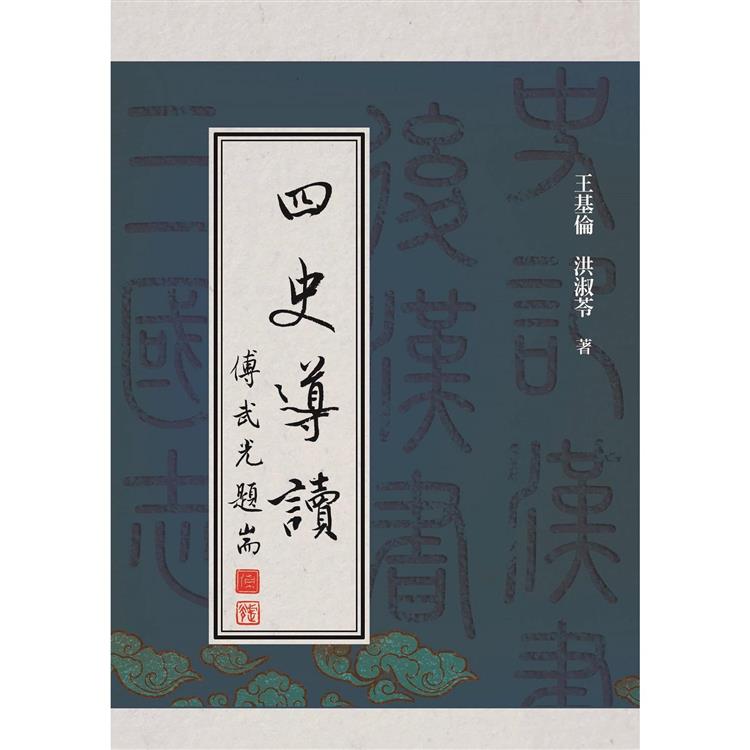 史記漢書
後漢書
三國志
王基倫 洪淑苓 著
四史導讀
傅武光題耑